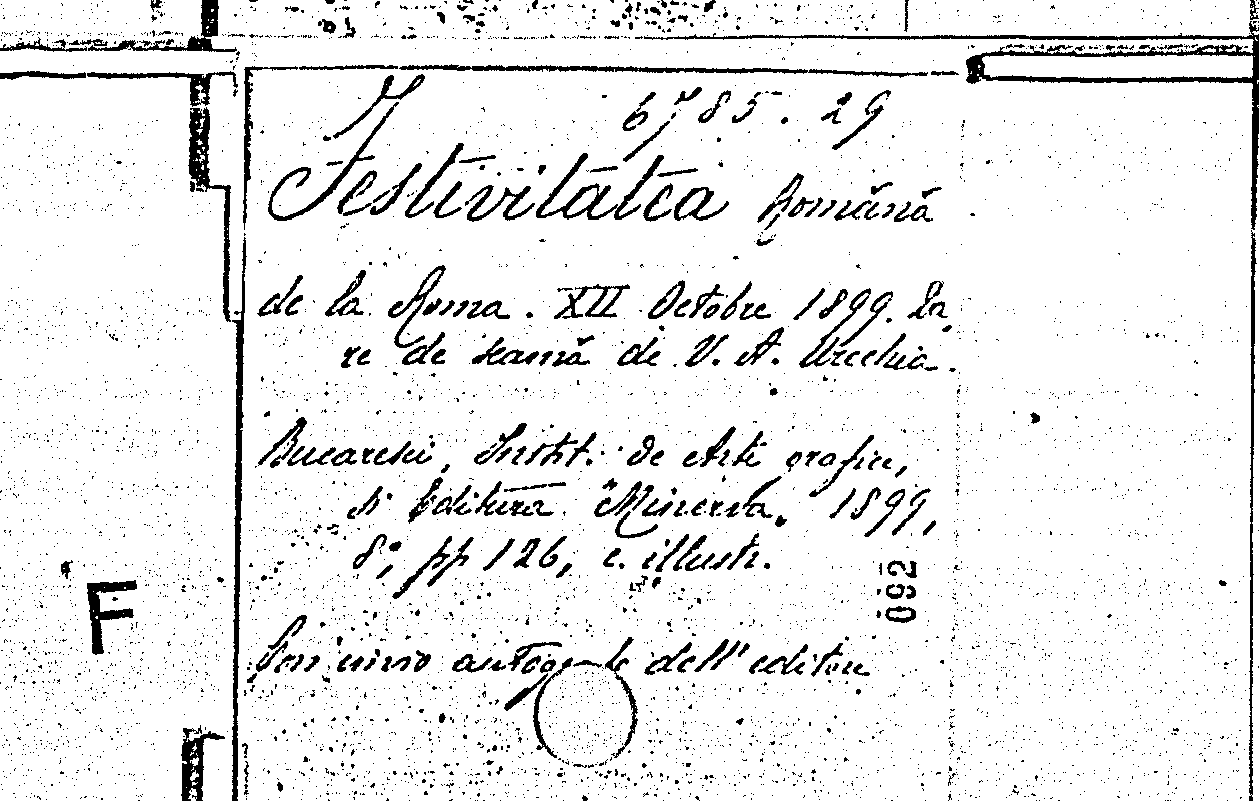 6785.29
Festivitatea Română
de la Roma. XII Octobre 1899. Da
re de seamă de V. A. Urechia.
Bucaresci, Instit. de Arte grafice,
si Editura "Minerva" 1899,
8°, pp 126, c. illustr.
092
F
Con invio autografo dell' editore